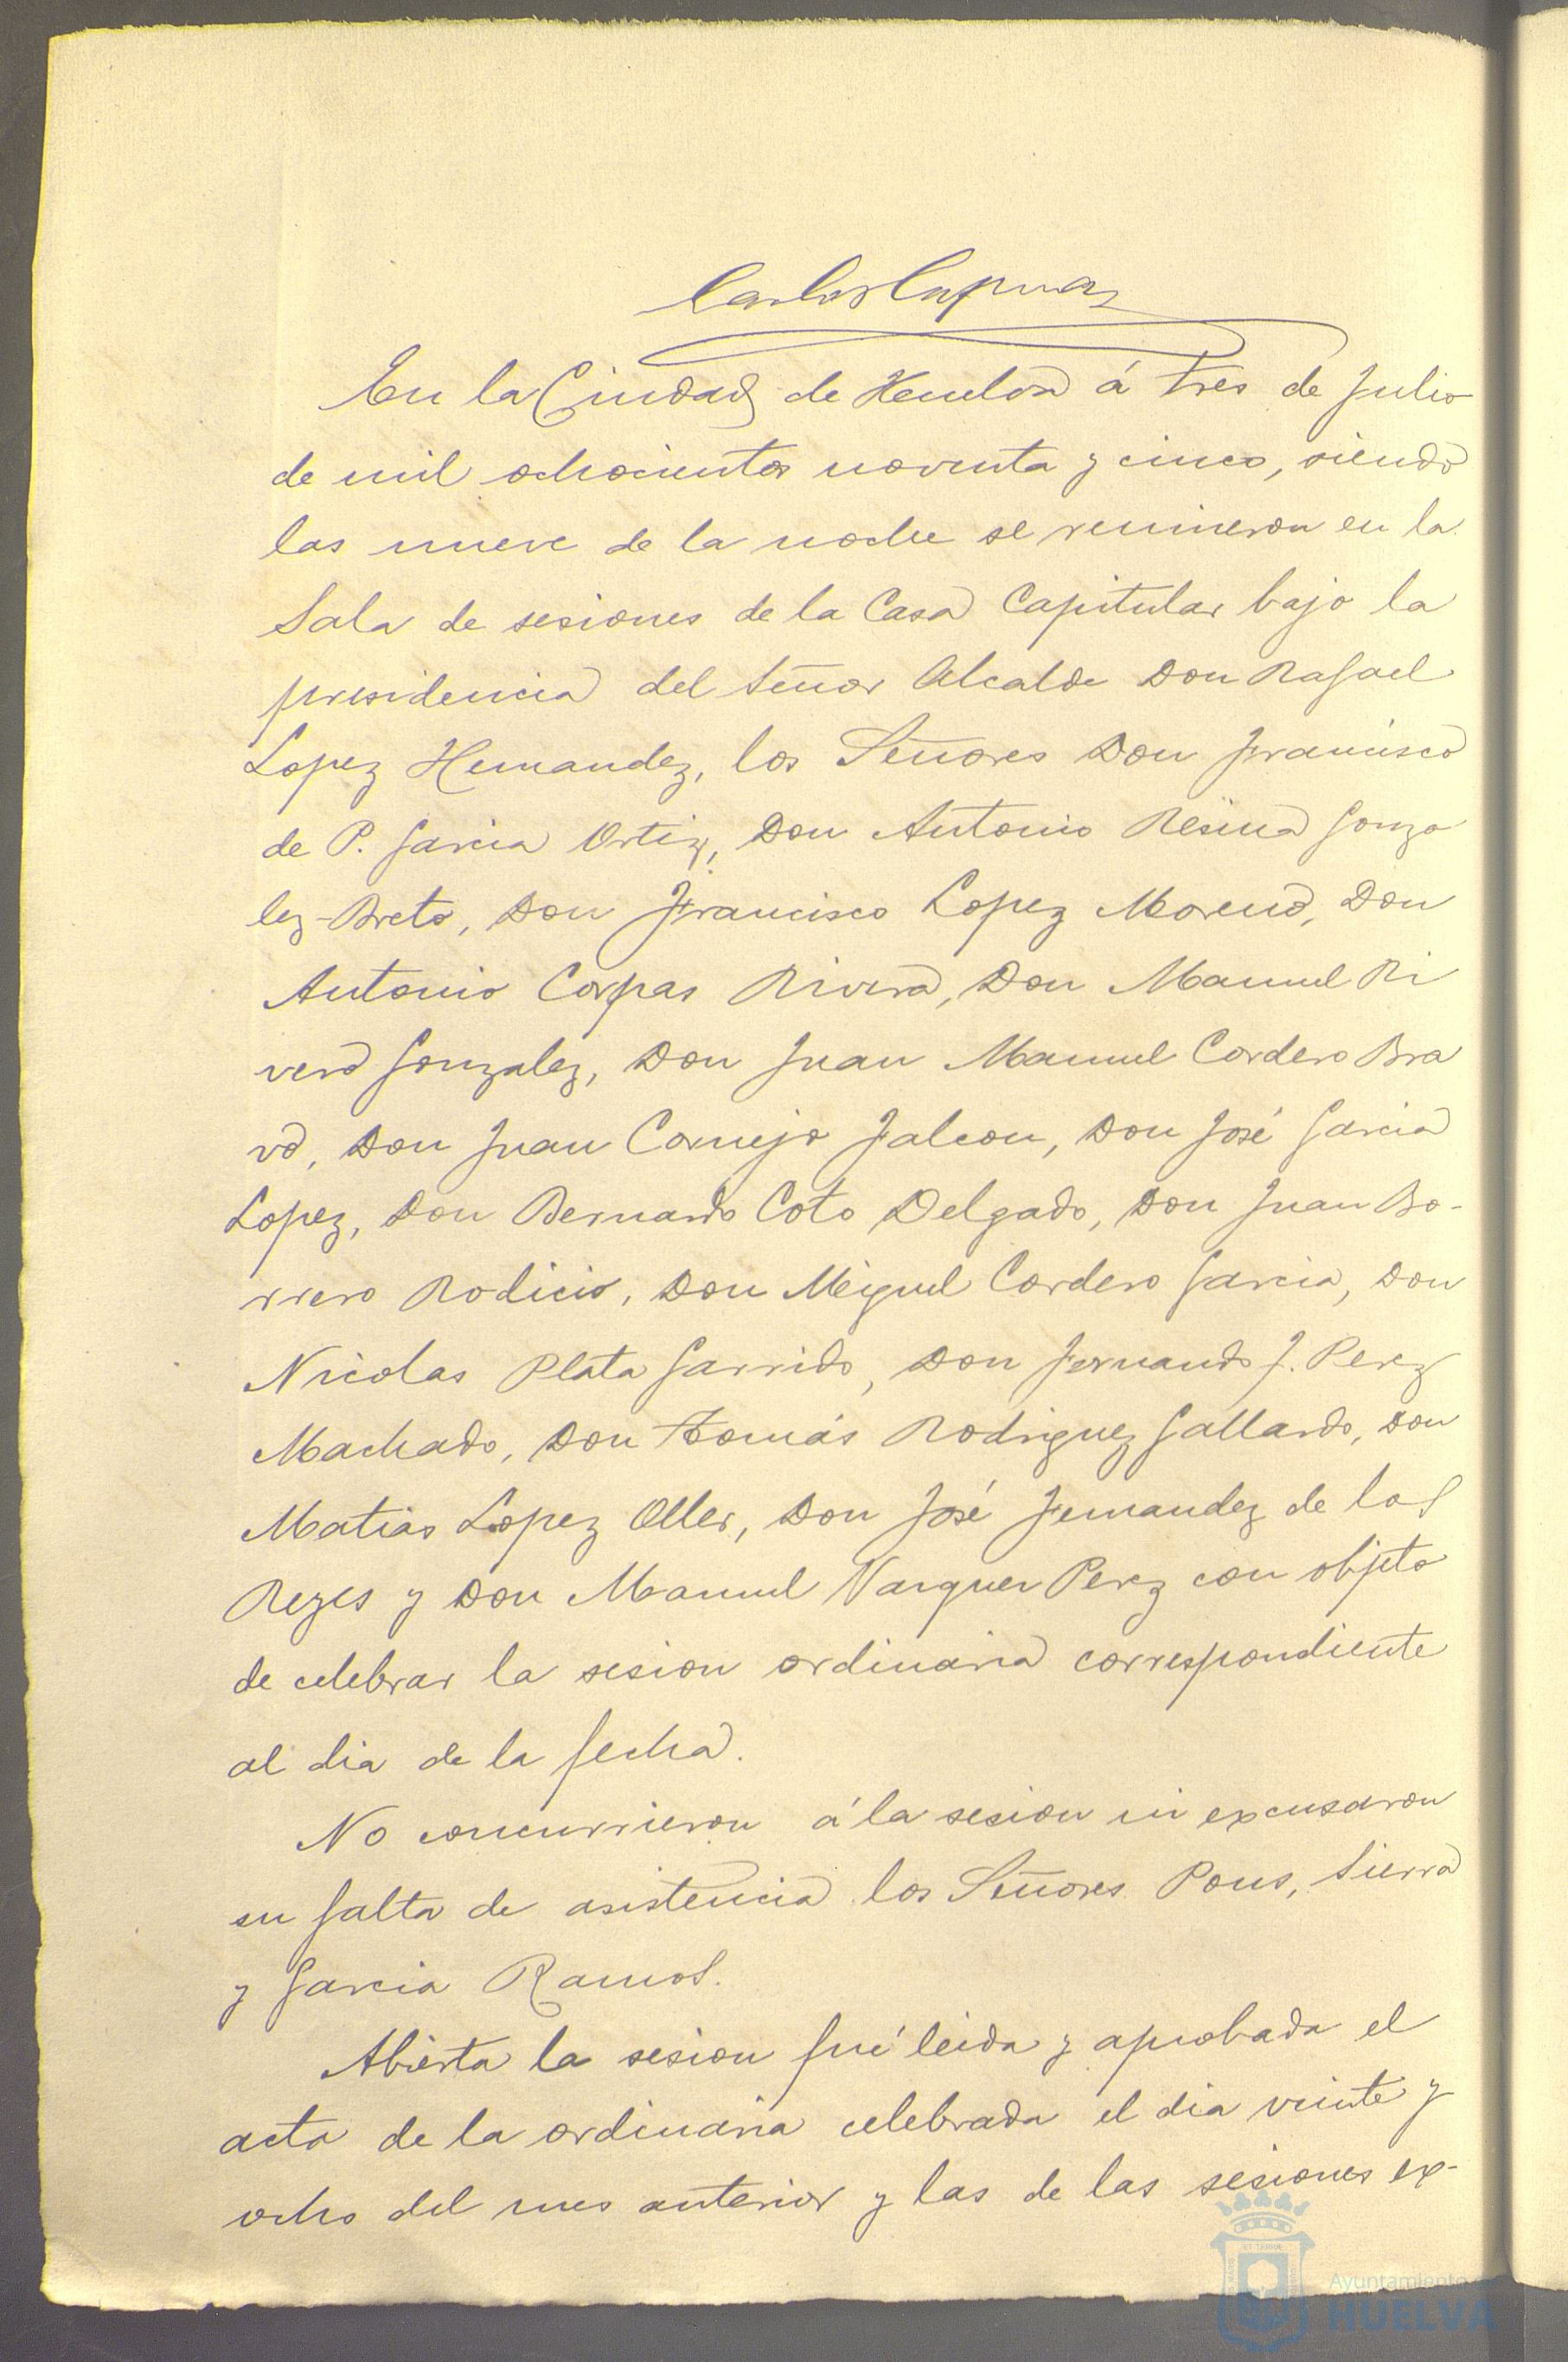 En la Ciudad de Huelva á tres de Julio
de mil ochocientos noventa y cinco, siendo
las nueve de la noche se reunieron en la
Sala de sesiones de la Casa Capitular bajo la
presidencia del Señor Alcalde Don Rafael
Lopez Hernandez, los Señores Don Francisco
de P. Garcia Ortiz, Don Antonio Resina Gonza
lez-Breto, Don Francisco Lopez Moreno, Don
Antonio Corpas Rivera, Don Manuel Ri
vero Gonzalez, Don Juan Manuel Cordero Bra
vo, Don Juan Cornejo Falcon, Don José Garcia
Lopez, Don Bernardo Coto Delgado, Don Juan Bo-
rrero Rodicio, Don Miguel Cordero Garcia, Don
Nicolas Plata Garrido, Don Fernando J. Perez
Machado, Don Tomás Rodriguez Gallardo, Don
Matias Lopez Oller, Don José Fernandez de los
Reyes y Don Manuel Vazquez Perez con objeto
de celebrar la sesion ordinaria correspondiente
al dia de la fecha.
No concurrieron á la sesion ni excusaron
su falta de asistencia los Señores Pons, Sierra
y Garcia Ramos.
Abierta la sesion fué leida y aprobada el
acta de la ordinaria celebrada el dia veinte y
ocho del mes anterior y las de las sesiones ex-
Ayuntamiento
HUELVA